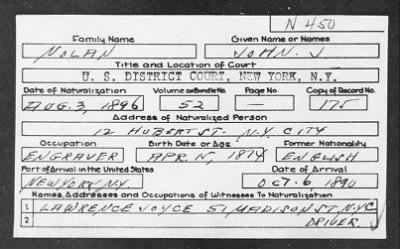 N 450
Family Name Given Name or Names
NOLAN JOHN. J.
Title and Location of Court
U. S. DISTRICT COURT, NEW YORK, N.Y.
Date of Naturalization Volume or Bundle No. Page No. Copy of Record No.
AUG. 3, 1896 52 — 175
Address of Naturalized Person
12 HUBERT ST. N.Y. CITY
Occupation Birth Date or Age Former Nationality
ENGRAVER APR. 15, 1874 ENGLISH
Port of Arrival in the United States Date of Arrival
NEW YORK N.Y. OCT. 6, 1890
Names, Addresses and Occupations of Witnesses To Naturalization
1 LAWRENCE JOYCE 51 MADISON ST. N.Y.C.
2 DRIVER.